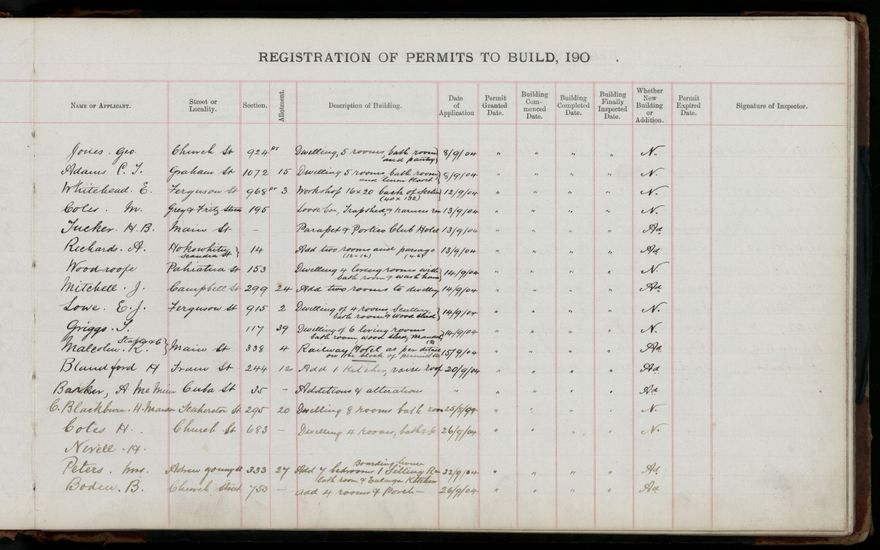 REGISTRATION OF PERMITS TO BUILD, 190 .
NAME OF APPLICANT. Street or Locality. Section. Allotment. Description of Building. Date of Application Permit Granted Date. Building Com-menced Date. Building Completed Date. Building Finally Inspected Date. Whether New Building or Addition. Permit Expired Date. Signature of Inspector.
Jones. Geo Church St 924 pt Dwelling, 5 rooms bath room and pantry 8/9/04 " " " " " N.
Adams C. J. Graham St 1072 15 Dwelling 5 rooms bath room and linen 8/9/04 " " " " " N.
Whitehead. E. Ferguson St 968 pt 3 Workshop 16x20 back of section (40 x 132) 12/9/04 " " " " " N.
Coles. M. Grey & Fitz 195 Loose Box, Trapshed, & harness rm 13/9/04 " " " " " N.
Tucker. H. B. Main St - Parapet & Portico Club Hotel 13/9/04 " " " " " Ad
Richards. A. Hokowhitu 14 Add two rooms and passage 13/9/04 " " " " " Ad
Woodroofe Pahiatua St 153 Dwelling 4 living rooms with bath room & wash house 14/9/04 " " " " " N.
Mitchell. J. Campbell St 299 24 Add two rooms to dwelling 14/9/04 " " " " " Ad
Lowe. E. J. Ferguson St 915 2 Dwelling of 4 rooms, Scullery, bath room & wood shed 14/9/04 " " " " " N.
Griggs. J. 117 39 Dwelling of 6 living rooms bath room, wood shed, 14/9/04 " " " " " N.
Malcolm. K. Main St 338 4 Railway Hotel as per detail on the block of permit 15/9/04 " " " " " Ad
Blandford H Train St 244 12 Add 1 Kitchen, raise roof 20/9/04 " " " " " Ad
Barker, A Cuba St 35 - Additions & alteration " " " " " " Ad
C. Blackburn. Featherston St 295 20 Dwelling 8 rooms bath room " " " " " N.
Coles H. Church St 683 - Dwelling 4 rooms, bath 26/9/04 " " " " " N.
Nevell. H.
Peters. Mrs. Andrew young St 333 27 Add 7 bedrooms 1 Sitting Rm Boarding house bath room & Enlarge Kitchen 22/9/04 " " " " " Ad
Boden. B. Church Street 753 - add 4 rooms & Porch - 26/9/04 " " " " " Ad